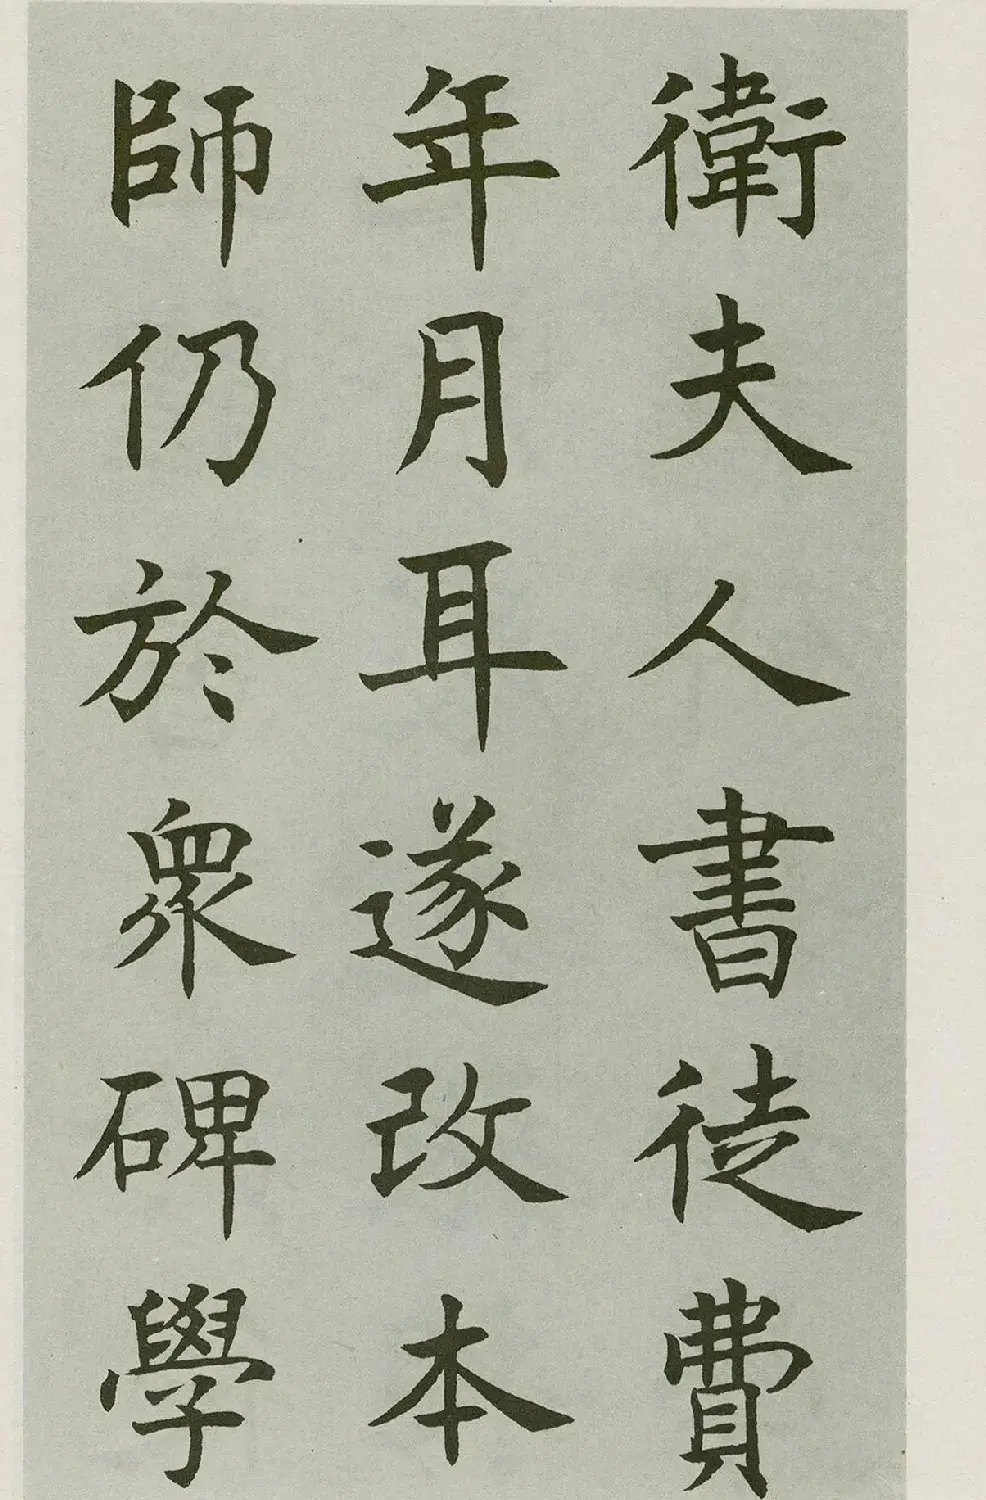 衛夫人書徒費
年月耳遂改本
師仍於衆碑學